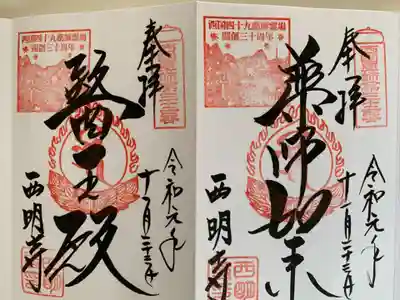 奉拝
西国四十九薬師霊場
開創三十周年
薬師如来
令和元年
十一月二十三日
西明寺
奉拝
西国四十九薬師霊場
開創三十周年
醫王殿
令和元年
十一月二十三日
西明寺